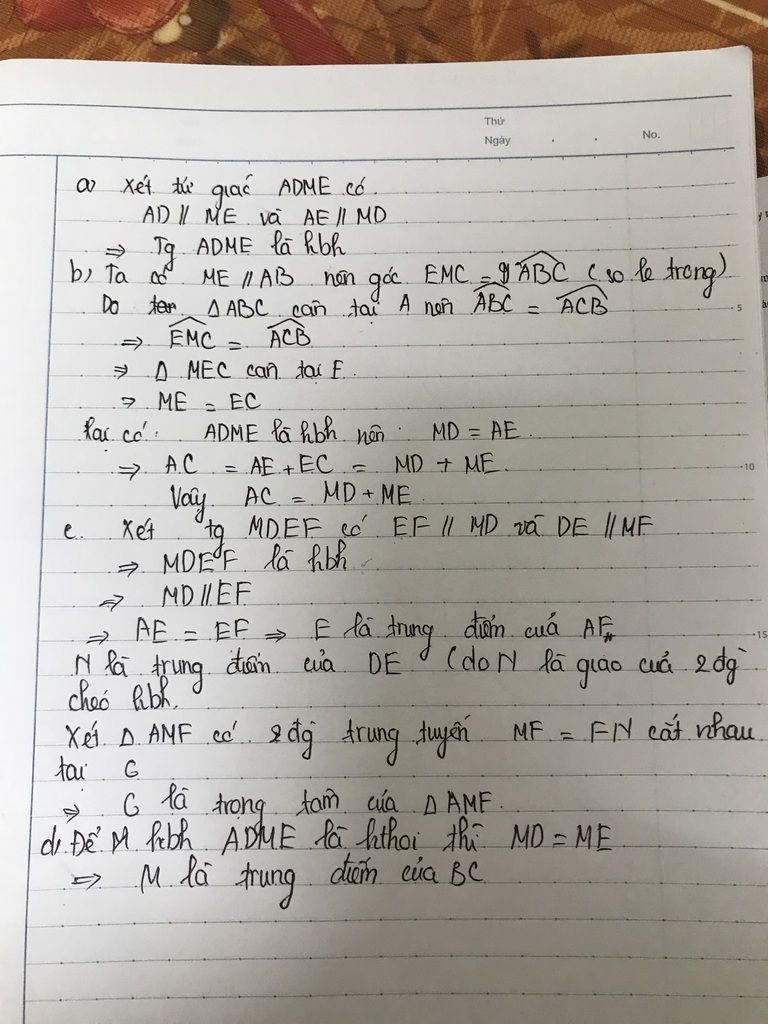 Thứ
Ngày . . No.
a) Xét tứ giác ADME có
AD // ME và AE // MD
⇒ Tg ADME là hbh
b, Ta có ME // AB nên góc EMC = ABC (so le trong)
Do ΔABC cân tại A nên ABC = ACB
⇒ EMC = ACB
⇒ Δ MEC can tại E.
⇒ ME = EC
lại có: ADME là hbh nên MD = AE.
⇒ AC = AE + EC = MD + ME.
Vậy AC = MD + ME.
c. Xét tg MDEF có EF // MD và DE // MF
⇒ MDEF là hbh
⇒ MD // EF
⇒ AE = EF ⇒ E là trung điểm của AF
N là trung điểm của DE (do N là giao của 2 đg
chéo hbh.
Xét Δ AMF có 2 đg trung tuyến MF = FN cắt nhau
tại G
⇒ G là trọng tâm của Δ AMF.
d, Để M hbh ADME là hthoi thì MD = ME
⇒ M là trung điểm của BC
5
10
15